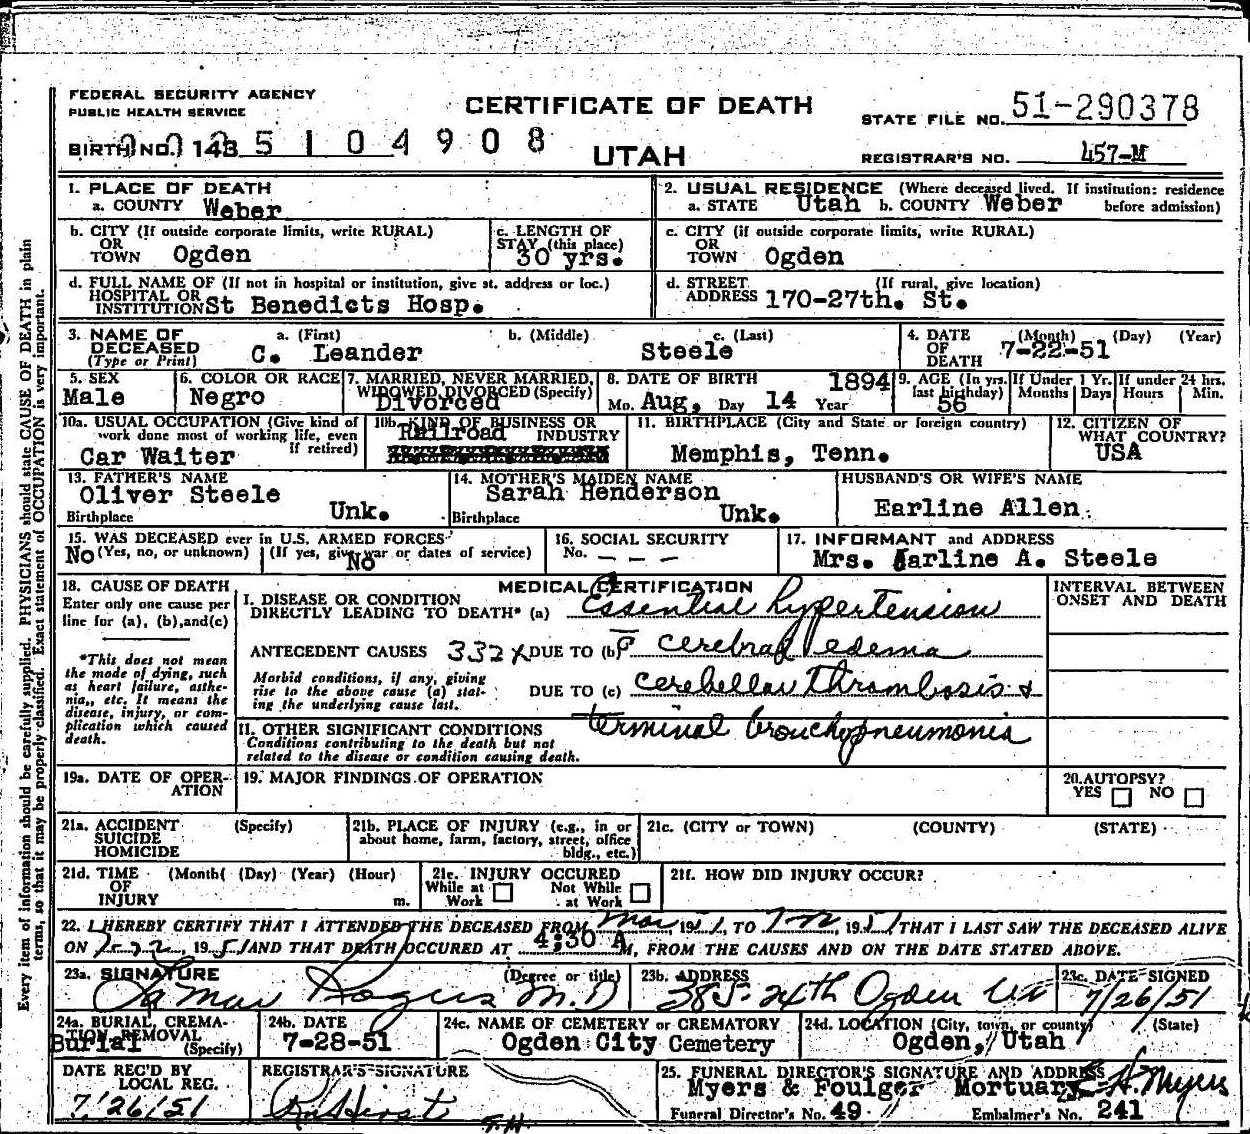 FEDERAL SECURITY AGENCY
PUBLIC HEALTH SERVICE
CERTIFICATE OF DEATH
STATE FILE NO. 51-290378
BIRTH NO. 143 5 1 0 4 9 0 8
UTAH
REGISTRAR'S NO. 457-M
Every item of information should be carefully supplied. PHYSICIANS should state CAUSE OF DEATH in plain
terms, so that it may be properly classified. Exact statement of OCCUPATION is very important.
1. PLACE OF DEATH
a. COUNTY Weber
2. USUAL RESIDENCE (Where deceased lived. If institution: residence
before admission)
a. STATE Utah b. COUNTY Weber
b. CITY (If outside corporate limits, write RURAL)
OR
TOWN Ogden
c. LENGTH OF
STAY (this place)
30 yrs.
c. CITY (if outside corporate limits, write RURAL)
OR
TOWN Ogden
d. FULL NAME OF (If not in hospital or institution, give st. address or loc.)
HOSPITAL OR
INSTITUTION St Benedicts Hosp.
d. STREET (If rural, give location)
ADDRESS 170-27th. St.
3. NAME OF
DECEASED
(Type or Print)
a. (First) b. (Middle) c. (Last)
C. Leander Steele
4. DATE
OF
DEATH
(Month) (Day) (Year)
7-22-51
5. SEX
Male
6. COLOR OR RACE
Negro
7. MARRIED, NEVER MARRIED,
WIDOWED, DIVORCED (Specify)
Divorced
8. DATE OF BIRTH 1894
Mo. Aug, Day 14 Year
9. AGE (In yrs.
last birthday)
56
If Under 1 Yr.
Months Days
If under 24 hrs.
Hours Min.
10a. USUAL OCCUPATION (Give kind of
work done most of working life, even
if retired)
Car Waiter
10b. KIND OF BUSINESS OR
INDUSTRY
Railroad
11. BIRTHPLACE (City and State or foreign country)
Memphis, Tenn.
12. CITIZEN OF
WHAT COUNTRY?
USA
13. FATHER'S NAME
Oliver Steele
Birthplace Unk.
14. MOTHER'S MAIDEN NAME
Sarah Henderson
Birthplace Unk.
HUSBAND'S OR WIFE'S NAME
Earline Allen
15. WAS DECEASED ever in U.S. ARMED FORCES
No (Yes, no, or unknown) (If yes, give war or dates of service)
No
16. SOCIAL SECURITY
No. - - -
17. INFORMANT and ADDRESS
Mrs. Earline A. Steele
18. CAUSE OF DEATH
Enter only one cause per
line for (a), (b), and (c)
*This does not mean
the mode of dying, such
as heart failure, asthe-
nia, etc. It means the
disease, injury, or com-
plication which caused
death.
MEDICAL CERTIFICATION
I. DISEASE OR CONDITION
DIRECTLY LEADING TO DEATH* (a) Essential hypertension
ANTECEDENT CAUSES 332X DUE TO (b) cerebral edema
Morbid conditions, if any, giving
rise to the above cause (a) stat-
ing the underlying cause last.
DUE TO (c) cerebellar thrombosis &
terminal bronchopneumonia
II. OTHER SIGNIFICANT CONDITIONS
Conditions contributing to the death but not
related to the disease or condition causing death.
INTERVAL BETWEEN
ONSET AND DEATH
19a. DATE OF OPER-
ATION
19. MAJOR FINDINGS OF OPERATION
20. AUTOPSY?
YES NO
21a. ACCIDENT (Specify)
SUICIDE
HOMICIDE
21b. PLACE OF INJURY (e.g., in or
about home, farm, factory, street, office
bldg., etc.)
21c. (CITY or TOWN) (COUNTY) (STATE)
21d. TIME (Month) (Day) (Year) (Hour)
OF
INJURY m.
21e. INJURY OCCURED
While at Work Not While at Work
21f. HOW DID INJURY OCCUR?
22. I HEREBY CERTIFY THAT I ATTENDED THE DECEASED FROM Mar 1951, TO 7-22, 1951 THAT I LAST SAW THE DECEASED ALIVE
ON 7-22, 1951 AND THAT DEATH OCCURED AT 4;30 A M, FROM THE CAUSES AND ON THE DATE STATED ABOVE.
23a. SIGNATURE (Degree or title)
LaMar Rogers M.D
23b. ADDRESS
385-24th Ogden Ut
23c. DATE SIGNED
7/26/51
24a. BURIAL, CREMA-
TION REMOVAL
(Specify)
Burial
24b. DATE
7-28-51
24c. NAME OF CEMETERY or CREMATORY
Ogden City Cemetery
24d. LOCATION (City, town, or county) (State)
Ogden, Utah
DATE REC'D BY
LOCAL REG.
7/26/51
REGISTRAR'S SIGNATURE
25. FUNERAL DIRECTOR'S SIGNATURE AND ADDRESS
Myers & Foulger Mortuary Myers
Funeral Director's No. 49 Embalmer's No. 241